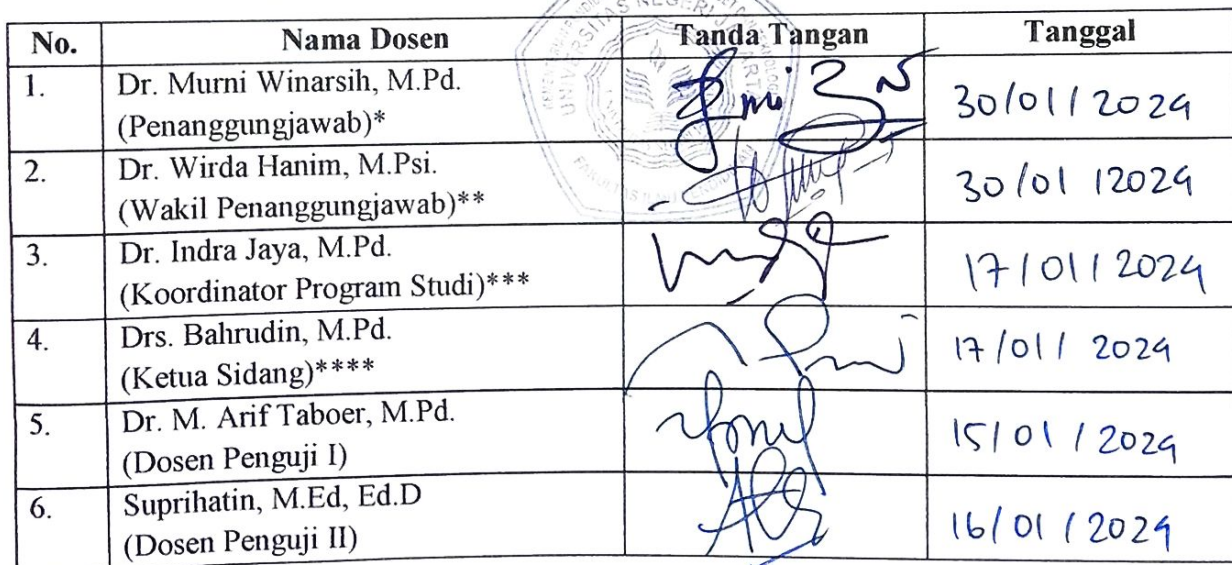 UNIVERSITAS NEGERI JAKARTA
No. Nama Dosen Tanda Tangan Tanggal
1. Dr. Murni Winarsih, M.Pd.
(Penanggungjawab)* 30/01/2024
2. Dr. Wirda Hanim, M.Psi.
(Wakil Penanggungjawab)** 30/01/2024
3. Dr. Indra Jaya, M.Pd.
(Koordinator Program Studi)*** 17/01/2024
4. Drs. Bahrudin, M.Pd.
(Ketua Sidang)**** 17/01/2024
5. Dr. M. Arif Taboer, M.Pd.
(Dosen Penguji I) 15/01/2024
6. Suprihatin, M.Ed, Ed.D
(Dosen Penguji II) 16/01/2024